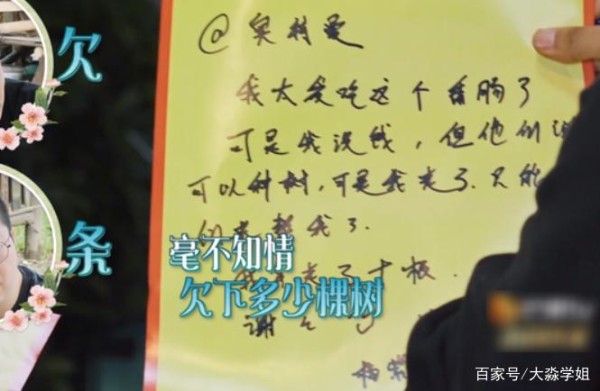 欠
条
@奥特曼
我太爱吃这个香肠了
可是我没钱，但他们说
可以种树，可是我走了.只能
们来帮我了.
走了十根.
谢
杨紫
毫不知情
欠下多少棵树
百家号/大淼学姐